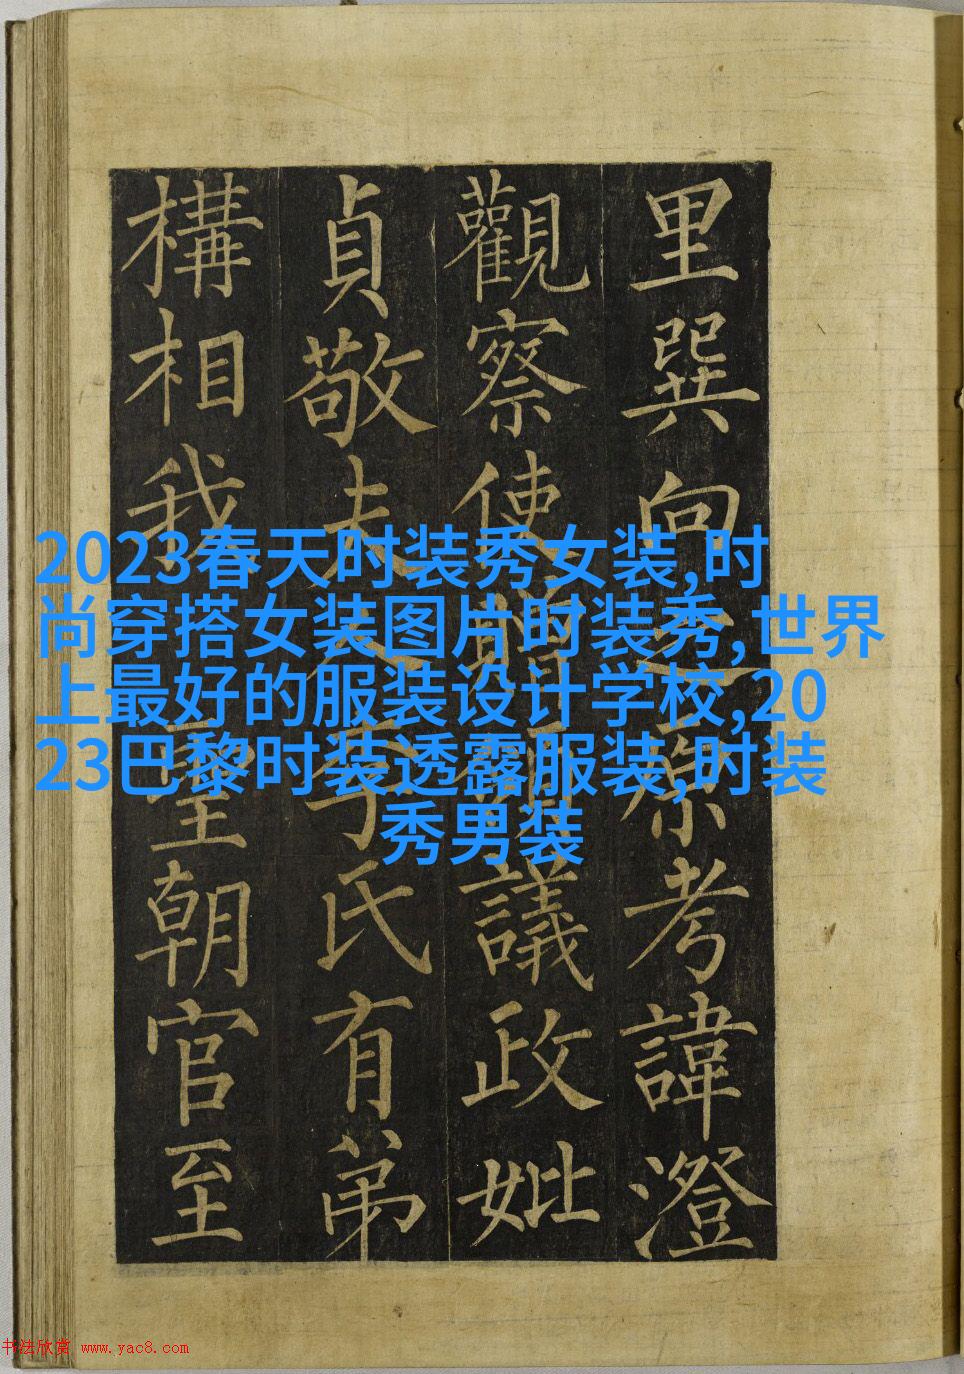 里巽向之原考諱澄
觀察使贈議政妣
貞敬夫人李氏有弟
構相我聖朝官至
2023春天时装秀女装,时
尚穿搭女装图片时装秀,世界
上最好的服装设计学校,20
23巴黎时装透露服装,时装
秀男装
书法欣赏 www.yac8.com